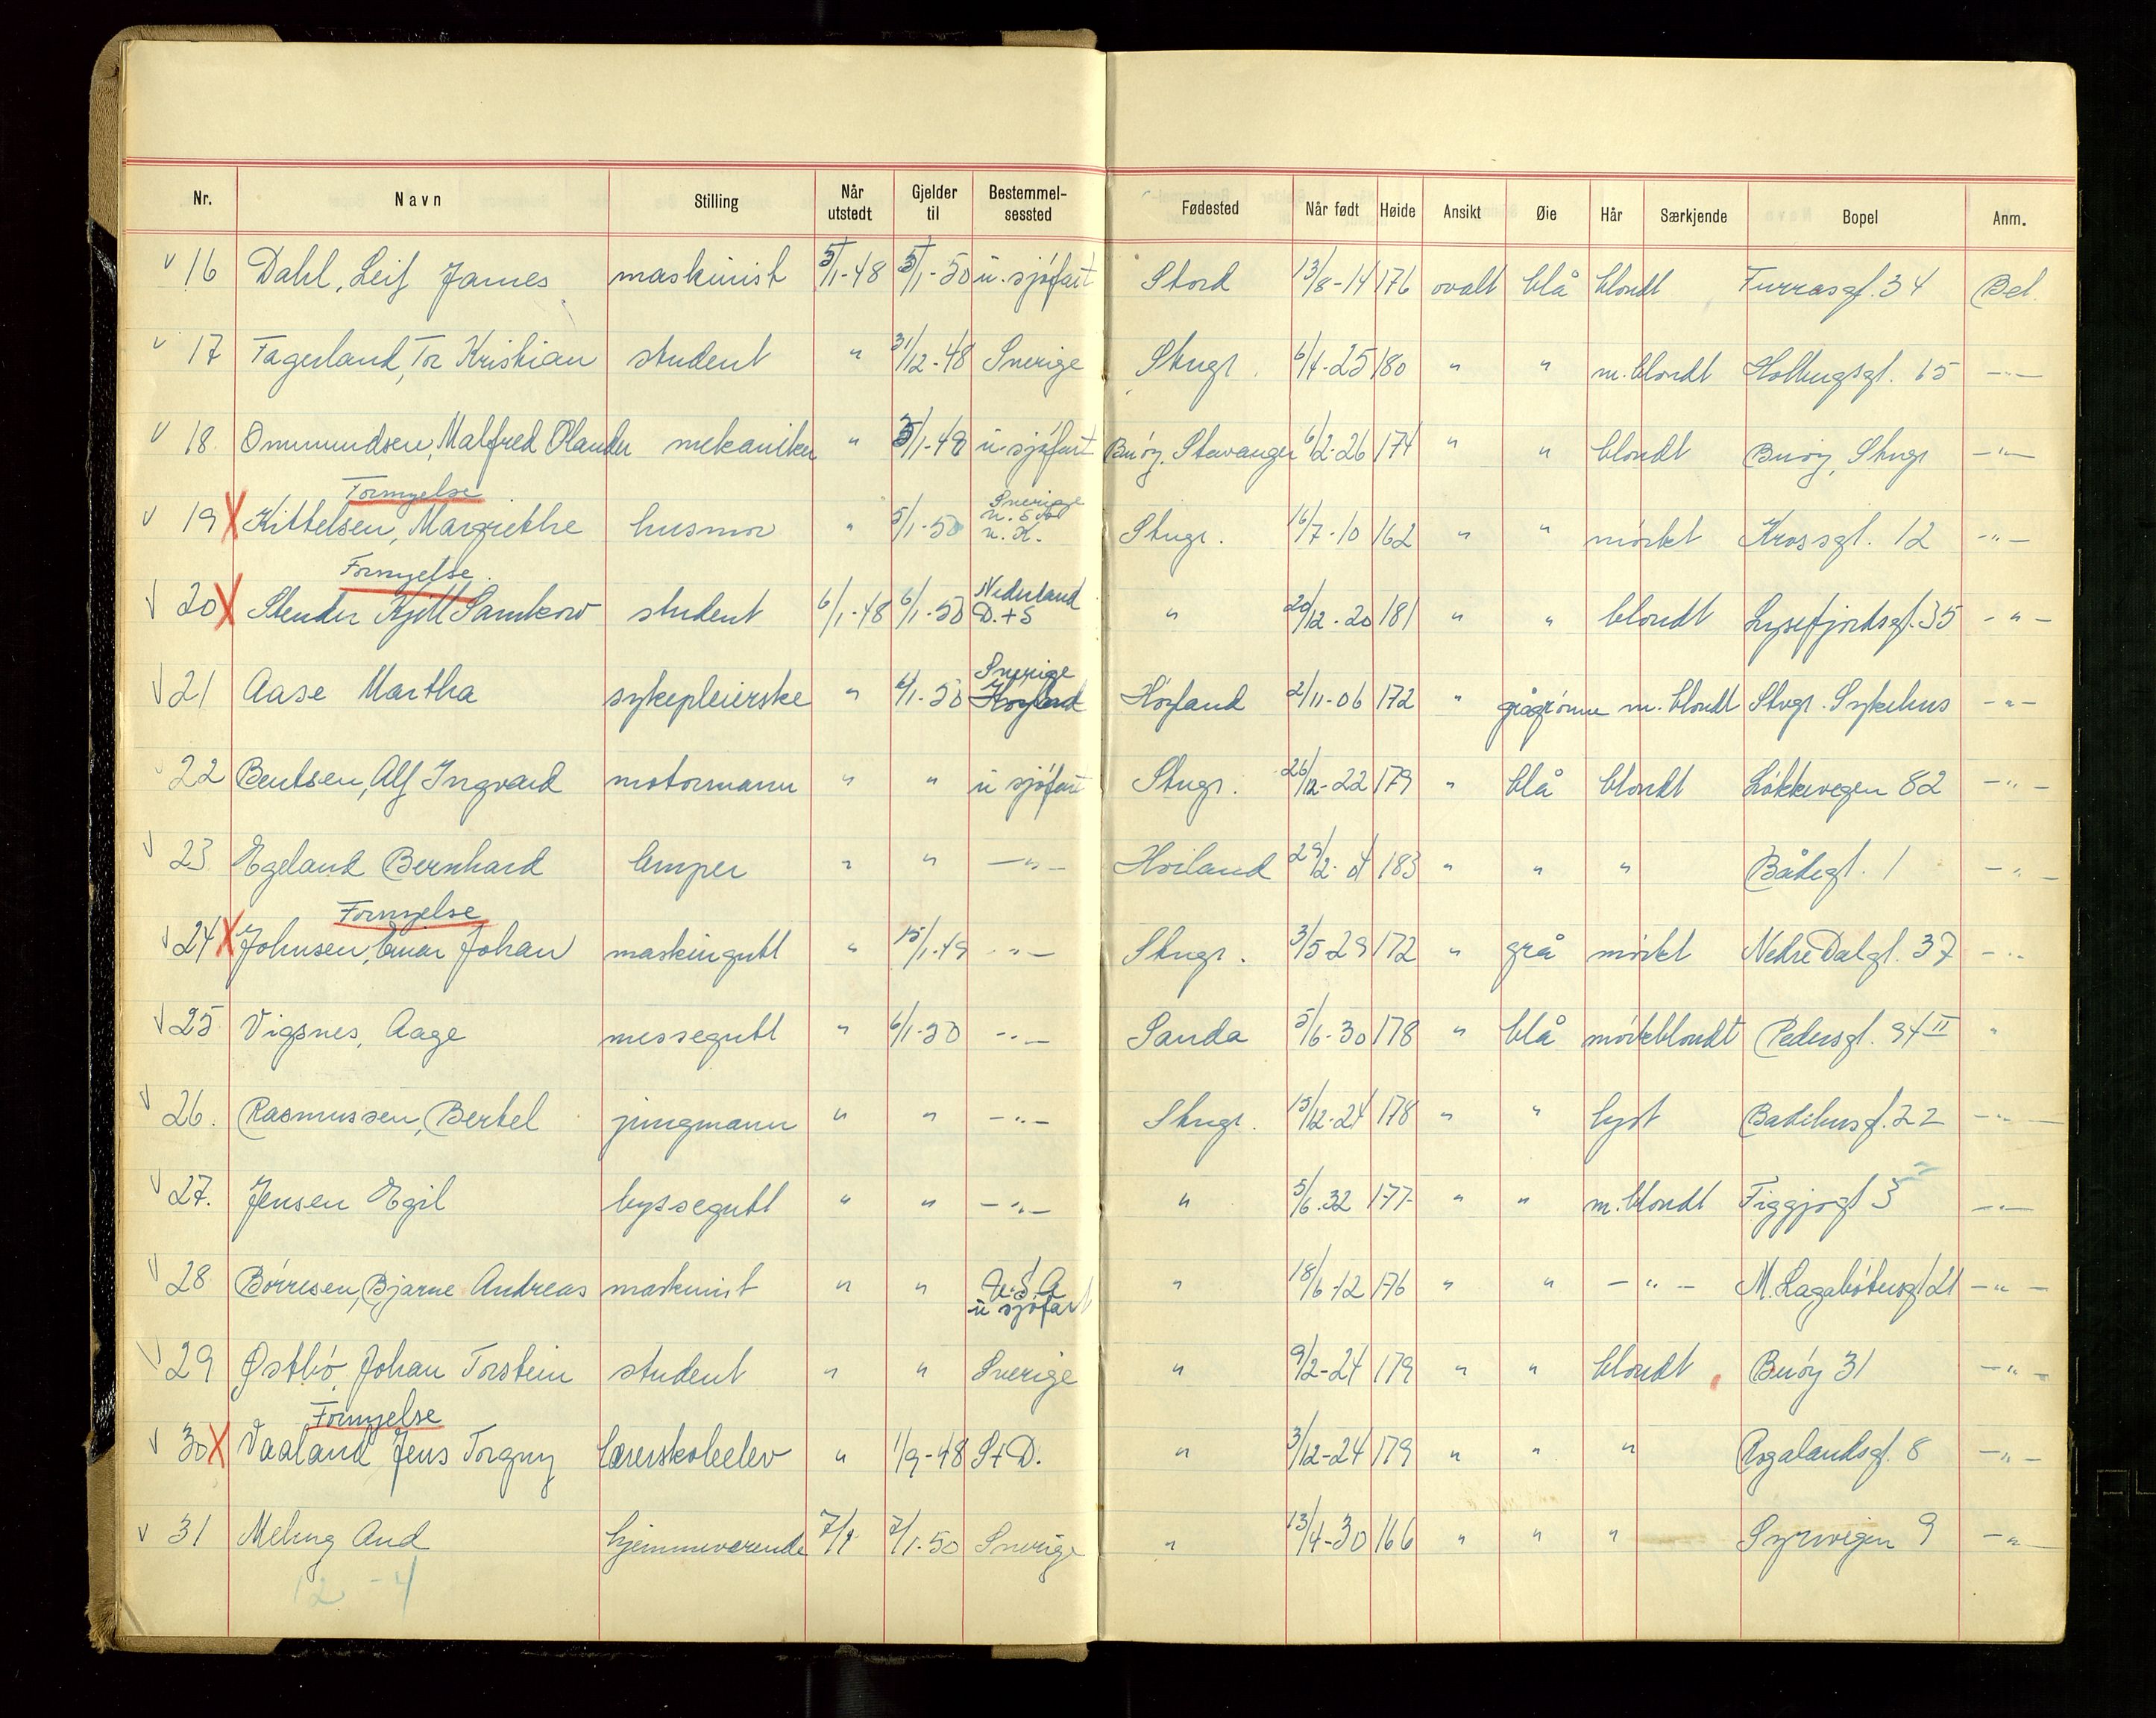 Nr. Navn Stilling Når utstedt Gjelder til Bestemmel-sessted Fødested Når født Høide Ansikt Øie Hår Særkjende Bopel Anm.
v 16 Dahl, Leif James maskinist 5/1-48 5/1-50 u. sjøfart Stord 13/8-14 176 ovalt blå blondt Furrasgt. 34 Bet.
v 17 Fagerland, Tor Kristian student " 31/12-48 Sverige Stvgr. 6/4-25 180 " " m. blondt Holbergsgt. 15 -"-
v 18. Ommundsen, Malfred Olander mekaniker " 5/1-48 u. sjøfart Buøy, Stavanger 6/2-26 174 " " blondt Buøy, Stvgr -"-
Fornyelse
v 19 X Kittelsen, Margrethe husmor " 5/1-50 Sverige u. S og u. K. Stvgr. 16/7-10 162 " " mørkt Krossgt. 12 -"-
Fornyelse
v 20 X Stender Kjell Samkow student 6/1-48 6/1-50 Nederland D. + S " 20/12-20 181 " " blondt Lysefjordsgt. 35 -"-
v 21 Aase Martha sykepleierske " 6/1-50 Sverige Høyland Høyland 2/11-06 172 " grågrønne m. blondt Stvgr. Sykehus -"-
22 Bentsen, Alf Ingvard motormann " " u sjøfart Stvgr. 26/12-22 179 " blå blondt Løkkevegen 82 -"-
v 23 Egeland Bernhard lemper " " -"- Høiland 29/2-04 183 " " " Bådegt. 1 -"-
Fornyelse
v 24 X Johnsen, Einar Johan maskingutt " 15/1-49 -"- Stvgr. 3/5-29 172 " grå mørkt Nedre Dalgt. 37 -"-
v 25 Vigsnes, Aage messegutt " 6/1-50 -"- Sanda 5/6-30 178 " blå mørkblondt Pedersgt. 94 II "
v 26. Rasmussen, Bertel jungmann " " -"- Stvgr. 15/12-24 178 " " lyst Badehusgt. 22 -"-
v 27. Jensen Egil byssegutt " " -"- " 5/6-32 177 " " m. blondt Figgjogt 3 -"-
v 28 Børresen, Bjarne Andreas maskinist " " U.S.A u sjøfart " 18/6-12 176 " " -"- M. Lagabøtersgt 21 -"-
v 29 Østbø, Johan Torstein student " " Sverige " 9/2-24 179 " " blondt Buøy 31 -"-
Fornyelse
v 30 X Vaaland Jens Torgny lærerskoleelev " 1/9-48 S + D. " 3/12-24 179 " " " Rogalandsgt. 8 -"-
v 31 Meling Aud hjemmeværende 7/1 7/1-50 Sverige " 13/4-30 166 " " " Syrevigen 9 -"-
12 - 4